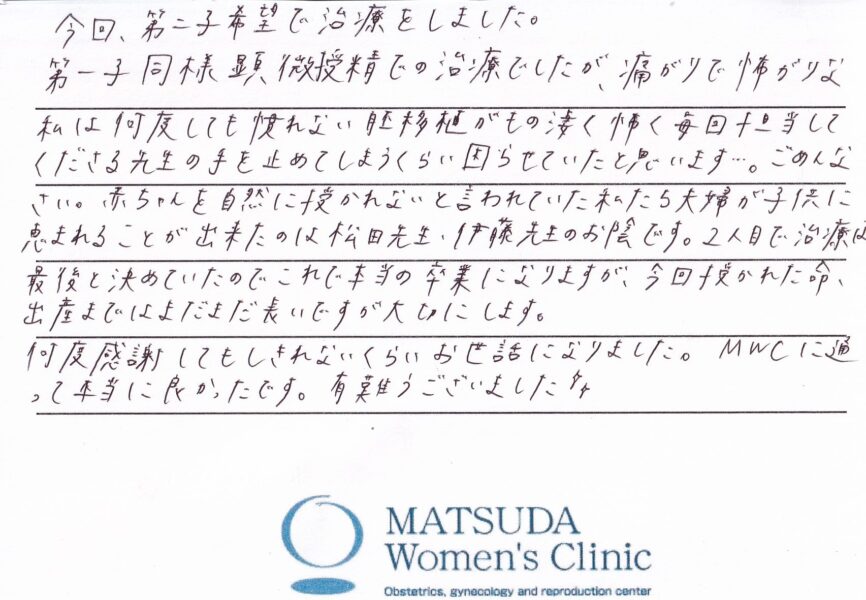 今回、第二子希望で治療をしました。
第一子同様顕微授精での治療でしたが、痛がりで怖がりな
私は何度しても慣れない胚移植がもの凄く怖く毎回担当して
くださる先生の手を止めてしまうくらい困らせていたと思います…。ごめんな
さい。赤ちゃんを自然に授かれないと言われていた私たち夫婦が子供に
恵まれることが出来たのは松田先生・伊藤先生のお陰です。2人目で治療は
最後と決めていたのでこれで本当の卒業になりますが、今回授かれた命、
出産まではまだまだ長いですが大切にします。
何度感謝してもしきれないくらいお世話になりました。MWCに通
って本当に良かったです。有難うございました
MATSUDA
Women's Clinic
Obstetrics, gynecology and reproduction center